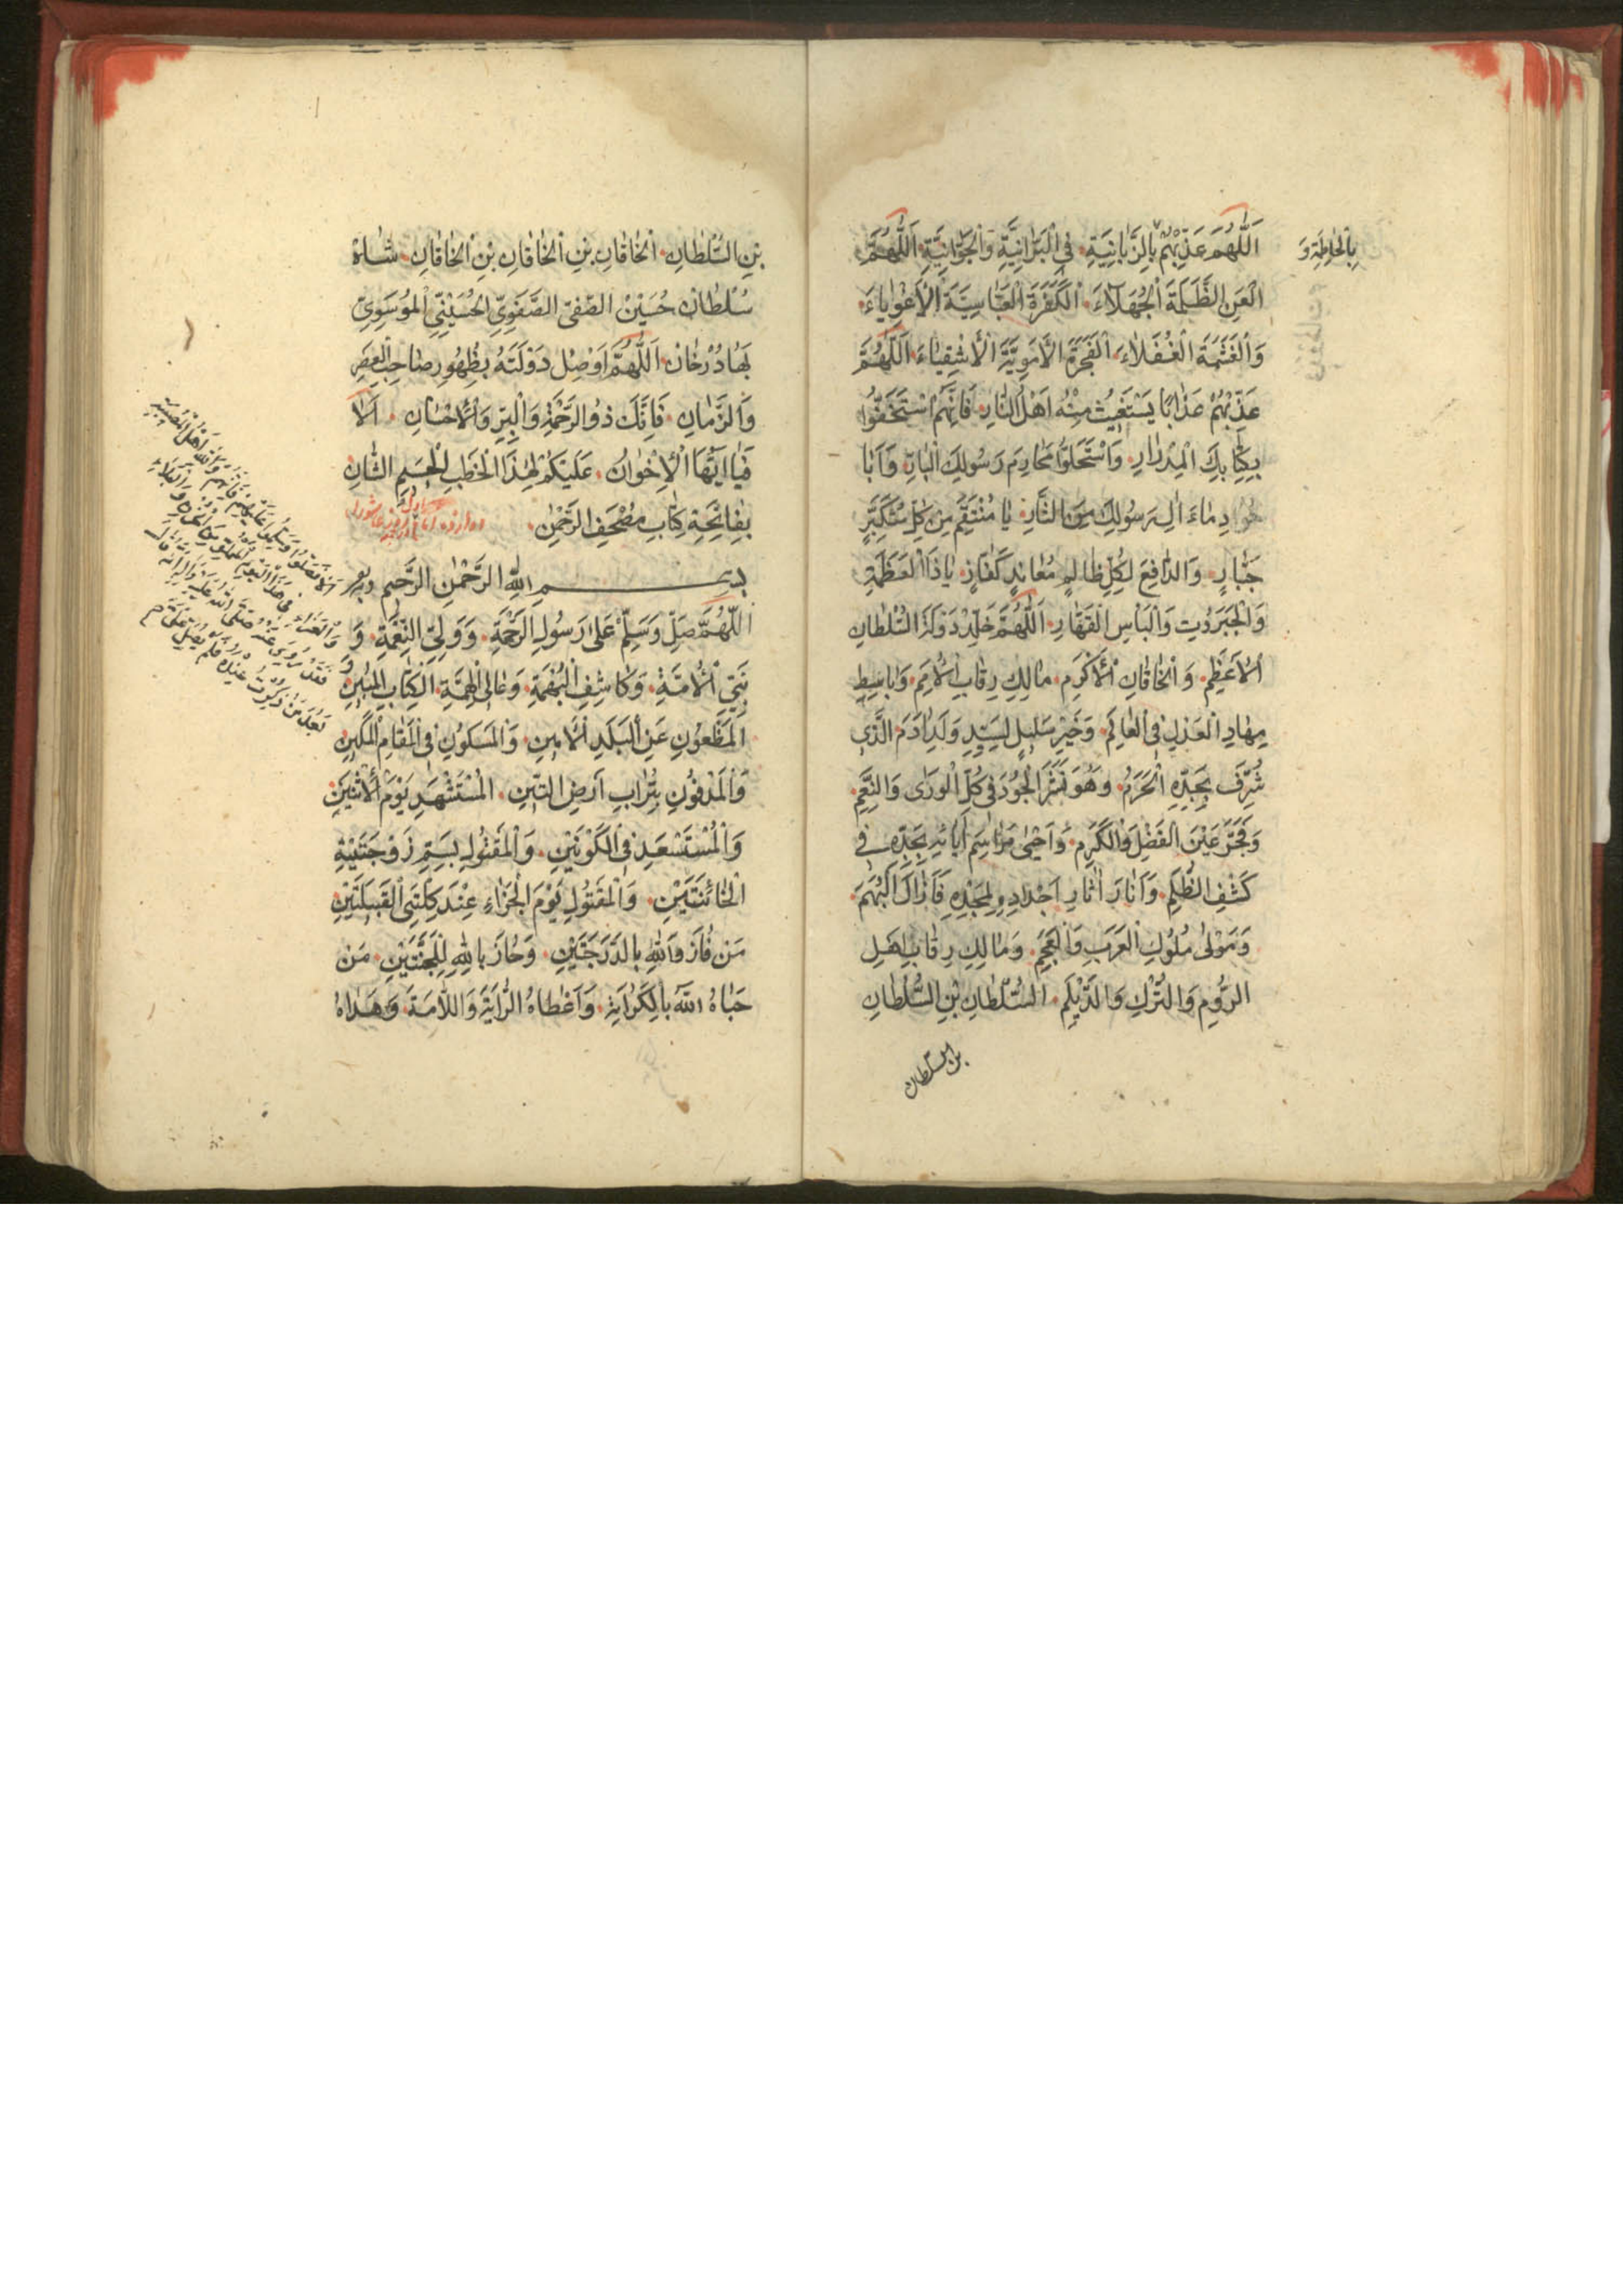 اَللّٰهُمَّ عَذِّبْهُمْ بِالزَّبَانِيَةِ فِي الْبَرَّانِيَّةِ وَالْجَوَّانِيَّةِ اَللّٰهُمَّ
بِالْحَاطِمَةِ وَ
الْعَنِ الظَّلَمَةَ الْجُهَلَاءَ الْكَفَرَةَ الْعَبَّاسِيَّةَ الْاَغْوِيَاءَ
وَالْغَشَمَةَ الْغُفَلَاءَ الْفَجَرَةَ الْاَمَوِيَّةَ الْاَشْقِيَاءَ اَللّٰهُمَّ
عَذِّبْهُمْ عَذَابًا يَسْتَغِيثُ مِنْهُ اَهْلُ النَّارِ فَاِنَّهُمْ اسْتَخَفُّوا
بِكِتَابِكَ الْمِدْرَارِ وَاسْتَحَلُّوا مَحَارِمَ رَسُولِكَ الْبَارِّ وَاَبَا
حُوا دِمَاءَ اٰلِ رَسُولِكَ يَا مُنْتَقِمُ مِنْ كُلِّ مُتَكَبِّرٍ
جَبَّارٍ وَالدَّافِعَ لِكُلِّ ظَالِمٍ مُعَانِدٍ كَفَّارٍ يَا ذَا الْعَظَمَةِ
وَالْجَبَرُوتِ وَالْبَأْسِ الْقَهَّارِ اَللّٰهُمَّ خَلِّدْ دَوْلَةَ السُّلْطَانِ
الْاَعْظَمِ وَالْخَاقَانِ الْاَكْرَمِ مَالِكِ رِقَابِ الْاُمَمِ وَبَاسِطِ
مِهَادِ الْعَدْلِ فِي الْعَالَمِ وَخَيْرِ سَلِيلٍ لِسَيِّدِ وَلَدِ اٰدَمَ الَّذِي
شُرِّفَ بِجَدِّهِ الْحَرَمُ وَهُوَ نَشَرَ الْجُودَ فِي كُلِّ الْوَرٰى وَالنِّعَمَ
وَفَجَّرَ عَيْنَ الْفَضْلِ وَالْكَرَمِ وَاَحْيٰى مَرَاسِمَ اٰبَائِهِ بِجَدِّهِ فِي
كَشْفِ الظُّلَمِ وَاَنَارَ اٰثَارَ اَجْدَادِهِ لِمَجْدِهِ فَاَزَالَ الْبُهَمَ
وَمَوْلٰى مُلُوكِ الْعَرَبِ وَالْعَجَمِ وَمَالِكِ رِقَابِ اَهْلِ
الرُّومِ وَالتُّرْكِ وَالدَّيْلَمِ السُّلْطَانِ بْنِ السُّلْطَانِ
بن السلطان
بْنِ السُّلْطَانِ الْخَاقَانِ بْنِ الْخَاقَانِ بْنِ الْخَاقَانِ شَاه
سُلْطَانْ حُسَيْنْ الصَّفِيِّ الصَّفَوِيِّ الْحُسَيْنِيِّ الْمُوسَوِيِّ
بَهَادُرْ خَانْ اَللّٰهُمَّ اَوْصِلْ دَوْلَتَهُ بِظُهُورِ صَاحِبِ الْعَصْرِ
وَالزَّمَانِ فَاِنَّكَ ذُو الرَّحْمَةِ وَالْبِرِّ وَالْاِحْسَانِ اَلَا
فَيَا اَيُّهَا الْاِخْوَانُ عَلَيْكُمْ لِهٰذَا الْخَطْبِ الْجَسِيمِ الشَّانِ
بِفَاتِحَةِ كِتَابِ مُصْحَفِ الرَّحْمٰنِ
بِسْمِ اللّٰهِ الرَّحْمٰنِ الرَّحِيمِ
اَللّٰهُمَّ صَلِّ وَسَلِّمْ عَلٰى رَسُولِ الرَّحْمَةِ وَوَلِيِّ النِّعْمَةِ وَ
نَبِيِّ الْاُمَّةِ وَكَاشِفِ الْبُهْمَةِ وَعَالِي الْهِمَّةِ الْكِتَابِ الْمُبِينِ وَ
الْمَظْعُونِ عَنِ الْبَلَدِ الْاَمِينِ وَالْمَسْكُونِ فِي الْمَقَامِ الْمَكِينِ
وَالْمَدْفُونِ بِتُرَابِ اَرْضِ التِّينِ الْمُسْتَشْهَدِ يَوْمَ الْاِثْنَيْنِ
وَالْمُسْتَسْعَدِ فِي الْكَوْنَيْنِ وَالْمَقْتُولِ بِسَمِّ زَوْجَتَيْهِ
الْخَائِنَتَيْنِ وَالْمَقْبُولِ يَوْمَ الْجَزَاءِ عِنْدَ كِلْتَيِ الْقَبِيلَتَيْنِ
مَنْ فَازَ وَاللّٰهِ بِالدَّرَجَتَيْنِ وَحَازَ بِاللّٰهِ لِلْجَنَّتَيْنِ مَنْ
حَبَاهُ اللّٰهُ بِالْكَرَامَةِ وَاَعْطَاهُ الرَّايَةَ وَاللَّامَةَ وَهَدَاهُ